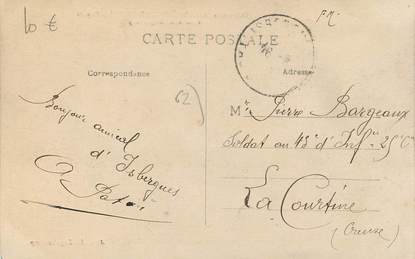 10 €
F.M.
CARTE POSTALE
Correspondance
Adresse
62
Bonjour amical
d'Isbergues
Mr Pierre Bargeaux
Soldat au 43e d'Infie 25e Cie
La Courtine
(Creuse)